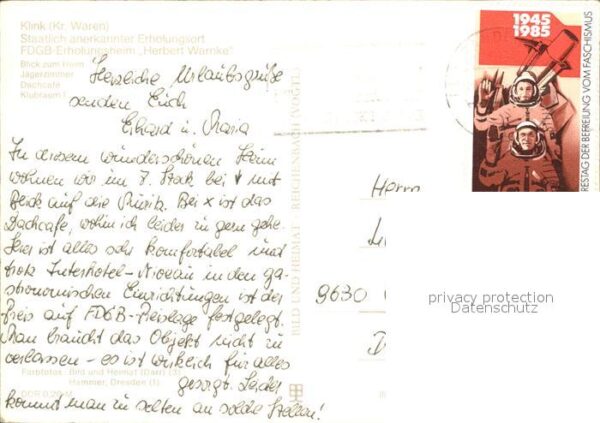 Klink (Kr. Waren)
Staatlich anerkannter Erholungsort
FDGB-Erholungsheim „Herbert Warnke"
Blick zum Heim
Jägerzimmer
Dachcafé
Klubraum
Herzliche Urlaubsgrüße
senden Euch
Erhard u. Maria
In diesem wunderschönen Heim
wohnen wir im 7. Stock bei ↓ mit
Blick auf die Müritz. Bei x ist das
Dachcafe, wohin ich leider zu gern gehe.
Hier ist alles sehr komfortabel und
trotz Interhotel-Niveau in den ga-
stronomischen Einrichtungen ist der
Preis auf FDGB-Preislage festgelegt.
Man braucht das Objekt nicht zu
verlassen - es ist wirklich für alles
gesorgt. Leider
kommt man zu selten an solche Stellen!
Farbfotos: Bild und Heimat (Darr) (3)
Hammer, Dresden (1)
DDR 0,20 M
BILD UND HEIMAT REICHENBACH (VOGTL)
Herrn
9630
1945
1985
RESTAG DER BEFREIUNG VOM FASCHISMUS
privacy protection
Datenschutz